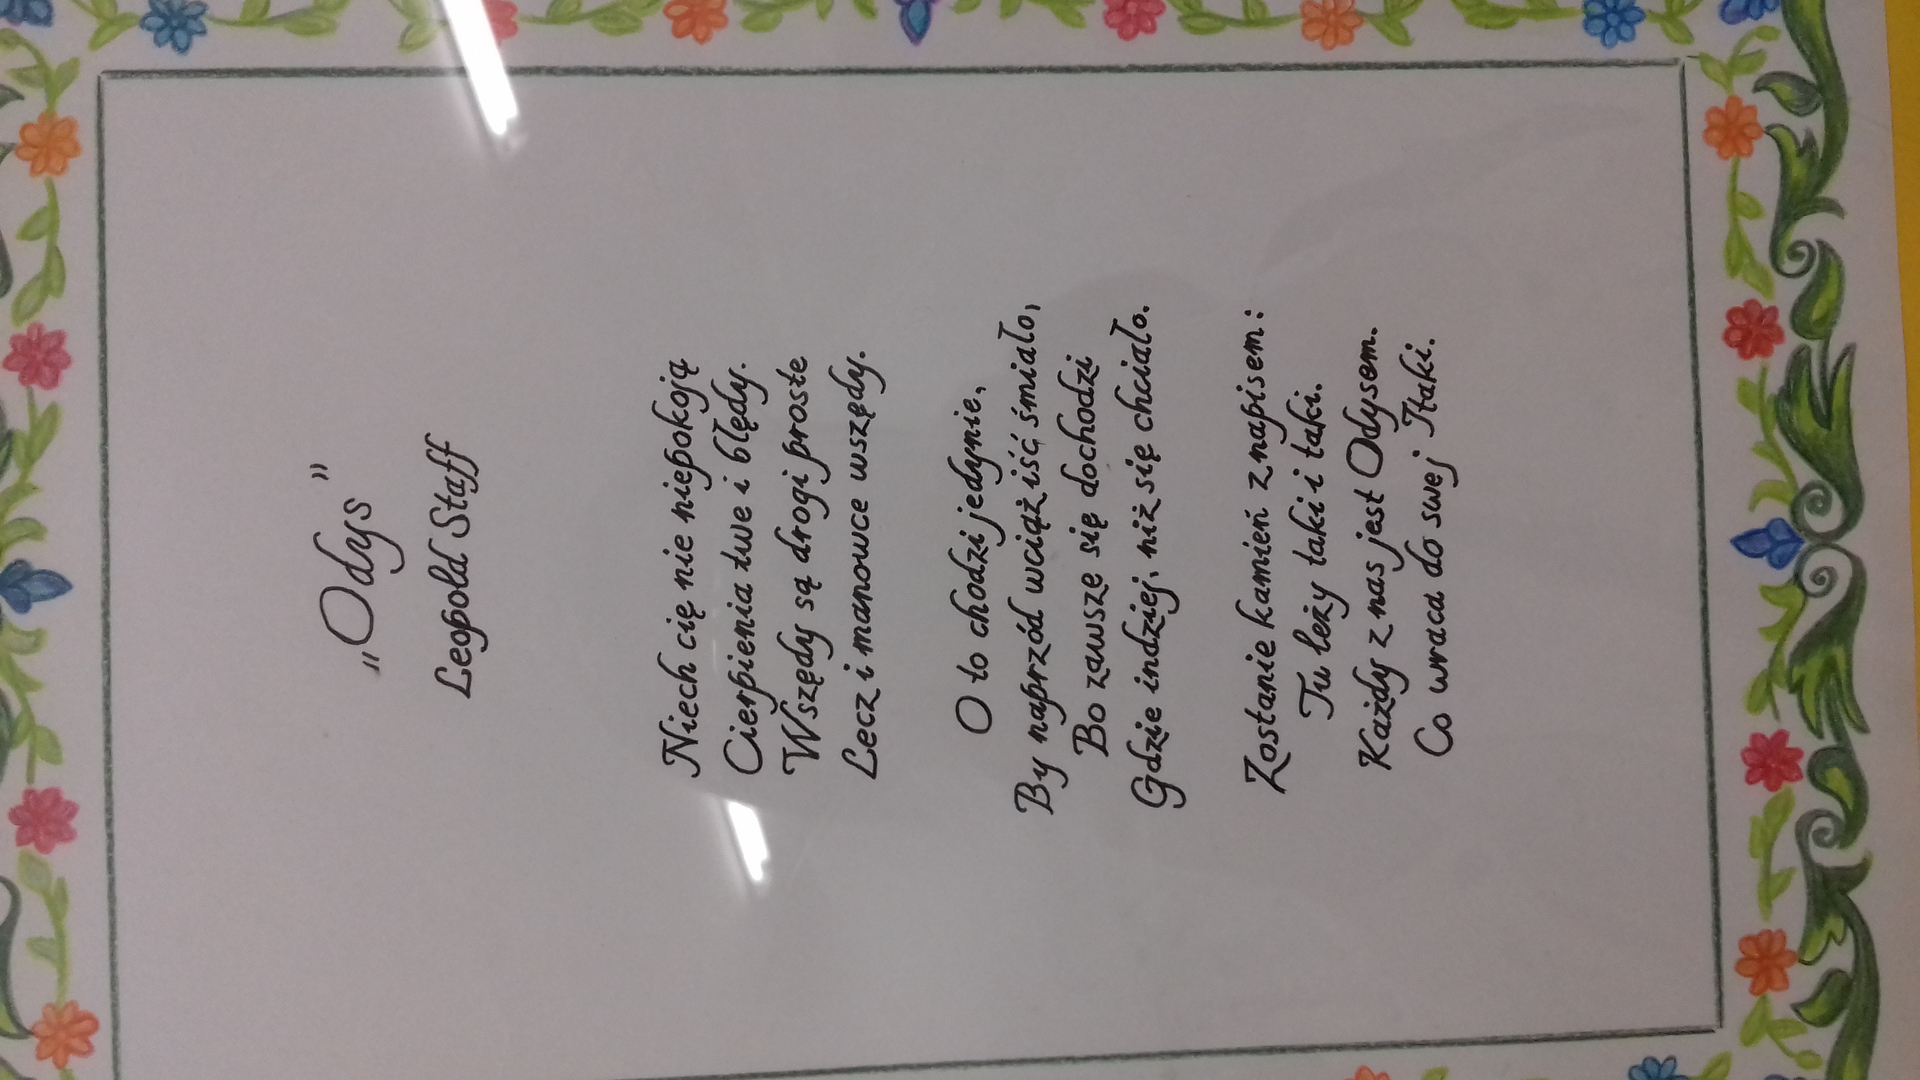 „Odys"
Leopold Staff
Niech cię nie niepokoją
Cierpienia twe i błędy.
Wszędy są drogi proste
Lecz i manowce wszędy.
O to chodzi jedynie,
By naprzód wciąż iść śmiało,
Bo zawsze się dochodzi
Gdzie indziej, niż się chciało.
Zostanie kamień z napisem:
Tu leży taki i taki.
Każdy z nas jest Odysem.
Co wraca do swej Itaki.